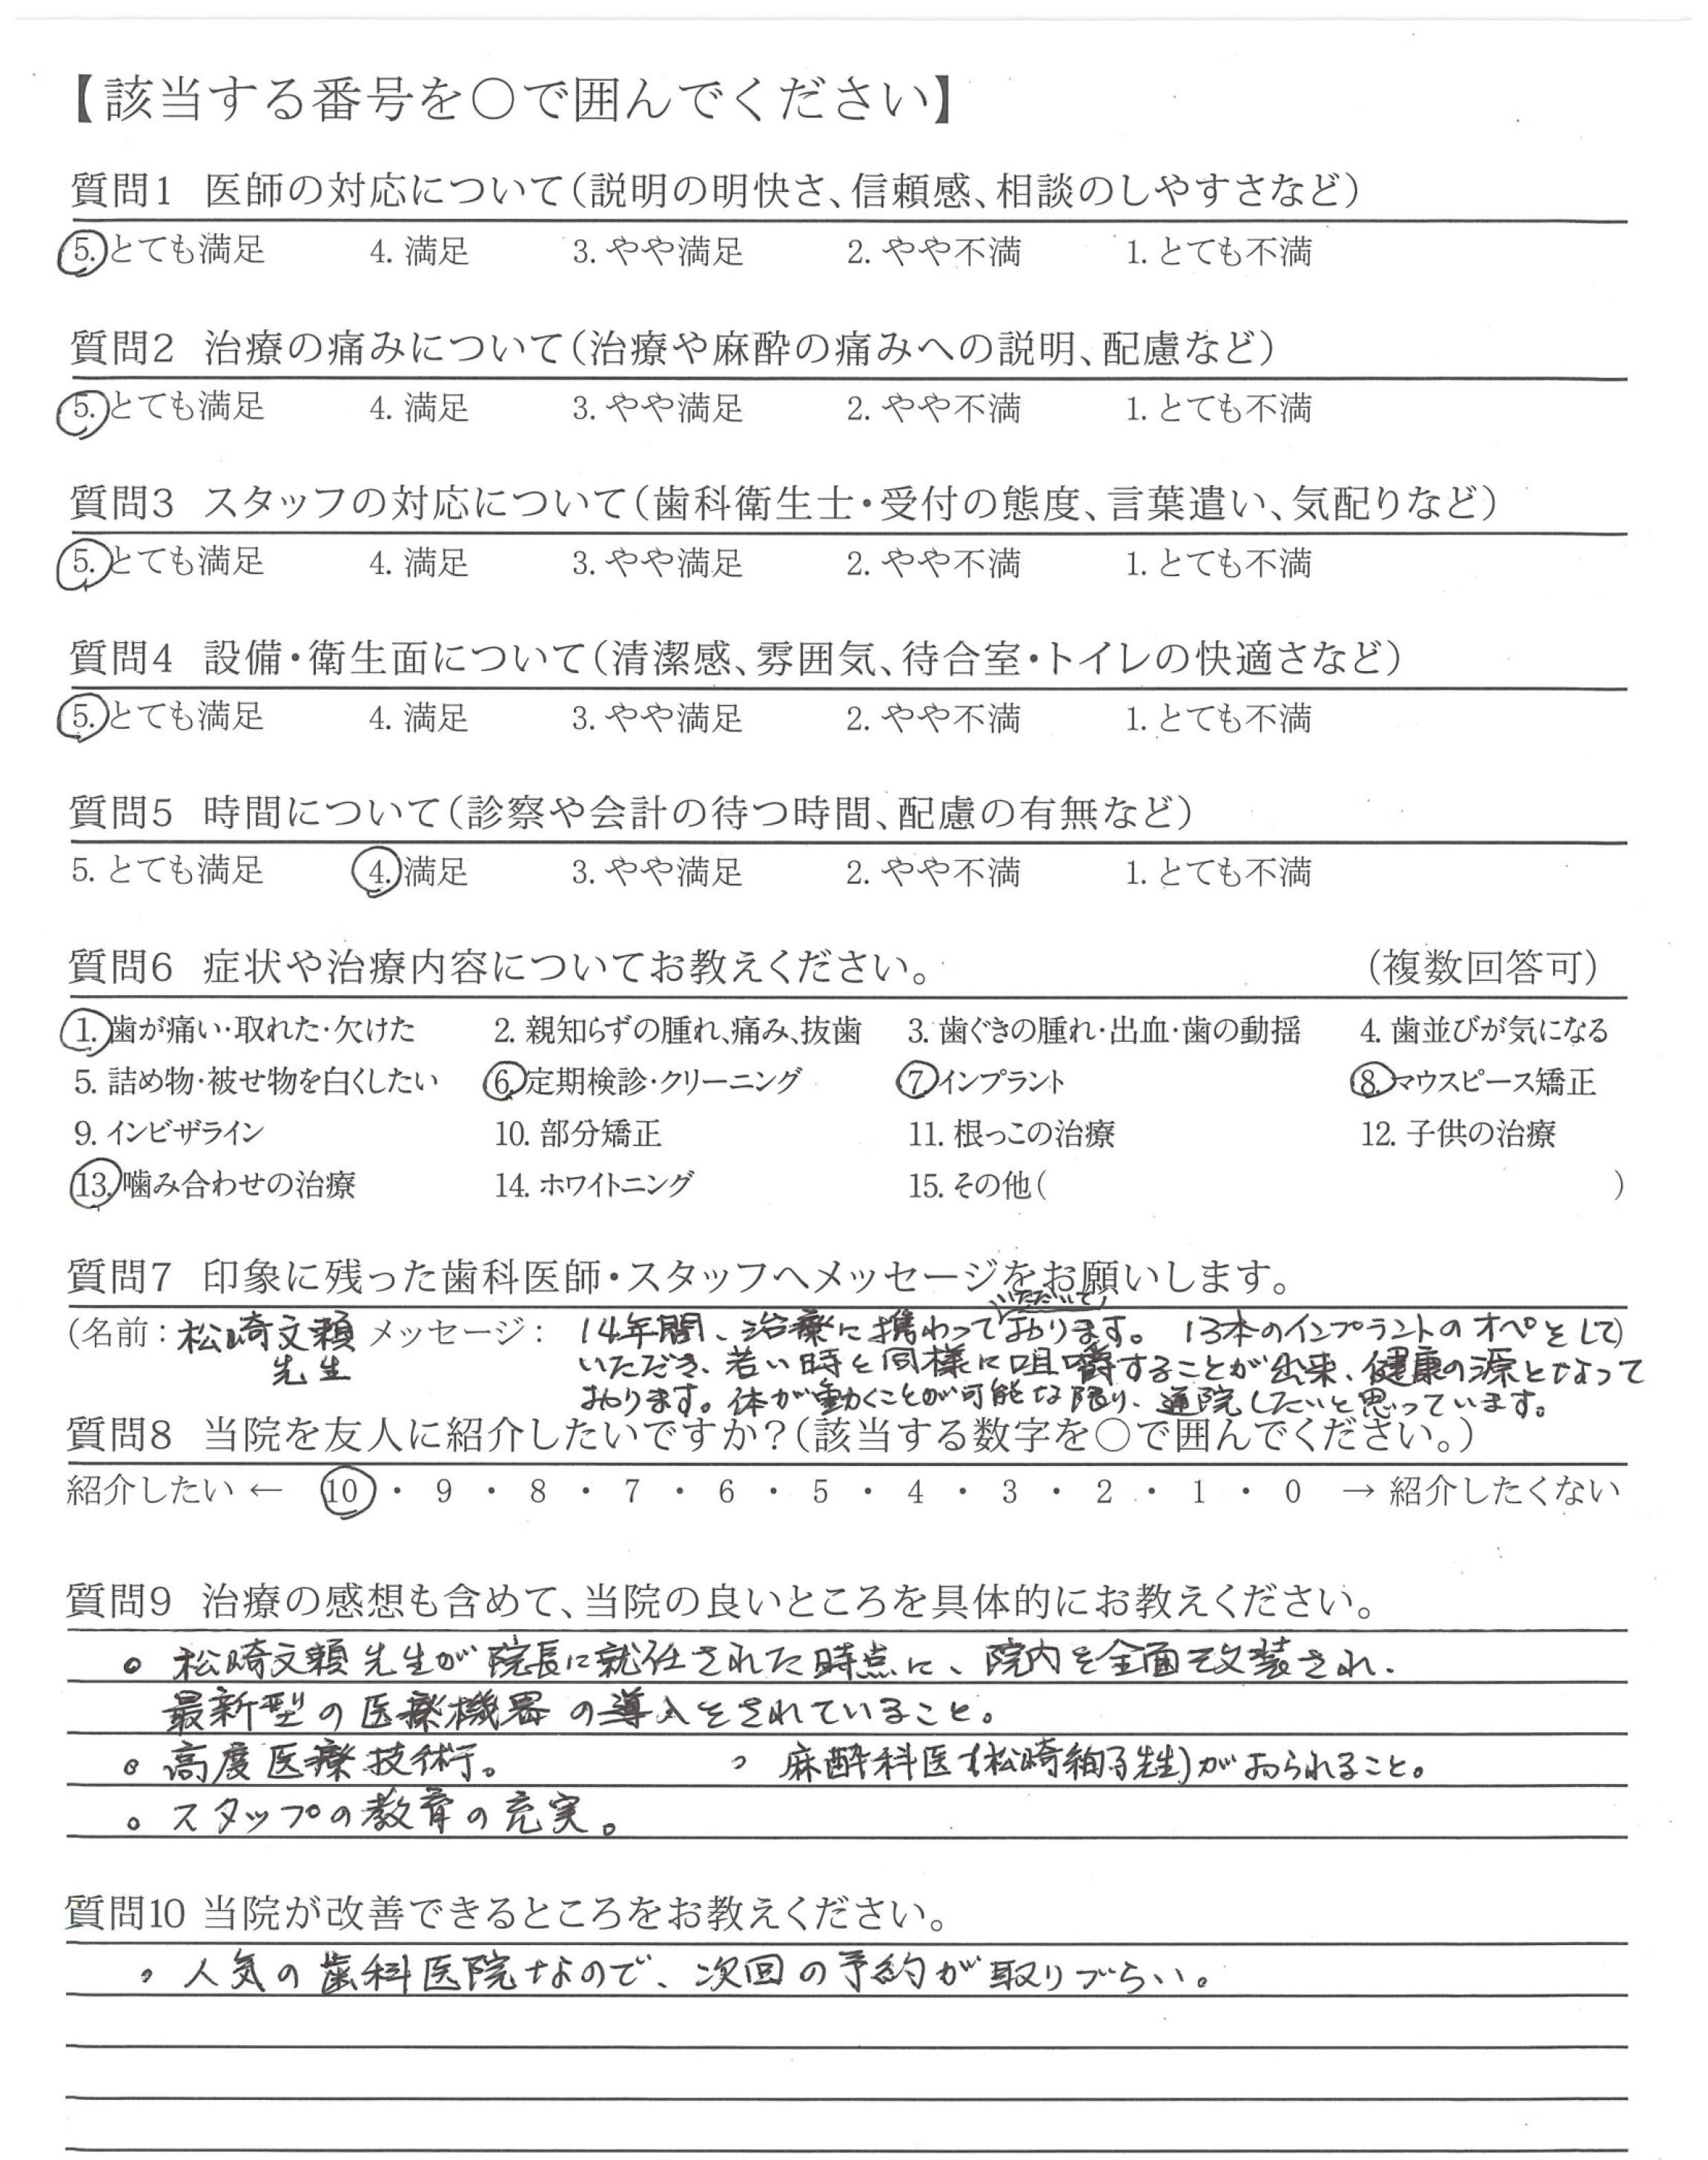 【該当する番号を○で囲んでください】
質問1 医師の対応について(説明の明快さ、信頼感、相談のしやすさなど)
5. とても満足 4. 満足 3. やや満足 2. やや不満 1. とても不満
質問2 治療の痛みについて(治療や麻酔の痛みへの説明、配慮など)
5. とても満足 4. 満足 3. やや満足 2. やや不満 1. とても不満
質問3 スタッフの対応について(歯科衛生士・受付の態度、言葉遣い、気配りなど)
5. とても満足 4. 満足 3. やや満足 2. やや不満 1. とても不満
質問4 設備・衛生面について(清潔感、雰囲気、待合室・トイレの快適さなど)
5. とても満足 4. 満足 3. やや満足 2. やや不満 1. とても不満
質問5 時間について(診察や会計の待つ時間、配慮の有無など)
5. とても満足 4. 満足 3. やや満足 2. やや不満 1. とても不満
質問6 症状や治療内容についてお教えください。 (複数回答可)
1. 歯が痛い・取れた・欠けた 2. 親知らずの腫れ、痛み、抜歯 3. 歯ぐきの腫れ・出血・歯の動揺 4. 歯並びが気になる
5. 詰め物・被せ物を白くしたい 6. 定期検診・クリーニング 7. インプラント 8. マウスピース矯正
9. インビザライン 10. 部分矯正 11. 根っこの治療 12. 子供の治療
13. 噛み合わせの治療 14. ホワイトニング 15. その他( )
質問7 印象に残った歯科医師・スタッフへメッセージをお願いします。
いただいて
(名前: 松崎文頼 メッセージ: 14年間、治療に携わっております。 13本のインプラントのオペをして)
先生 いただき、若い時と同様に咀嚼することが出来、健康の源となって
おります。体が動くことが可能な限り、通院したいと思っています。
質問8 当院を友人に紹介したいですか?(該当する数字を○で囲んでください。)
紹介したい ← 10 ・ 9 ・ 8 ・ 7 ・ 6 ・ 5 ・ 4 ・ 3 ・ 2 ・ 1 ・ 0 → 紹介したくない
質問9 治療の感想も含めて、当院の良いところを具体的にお教えください。
○ 松崎文頼先生が院長に就任された時点に、院内を全面改装され、
最新型の医療機器の導入をされていること。
○ 高度医療技術。 ○ 麻酔科医(松崎絢子先生)がおられること。
○ スタップの教育の充実。
質問10 当院が改善できるところをお教えください。
○ 人気の歯科医院なので、次回の予約が取りづらい。